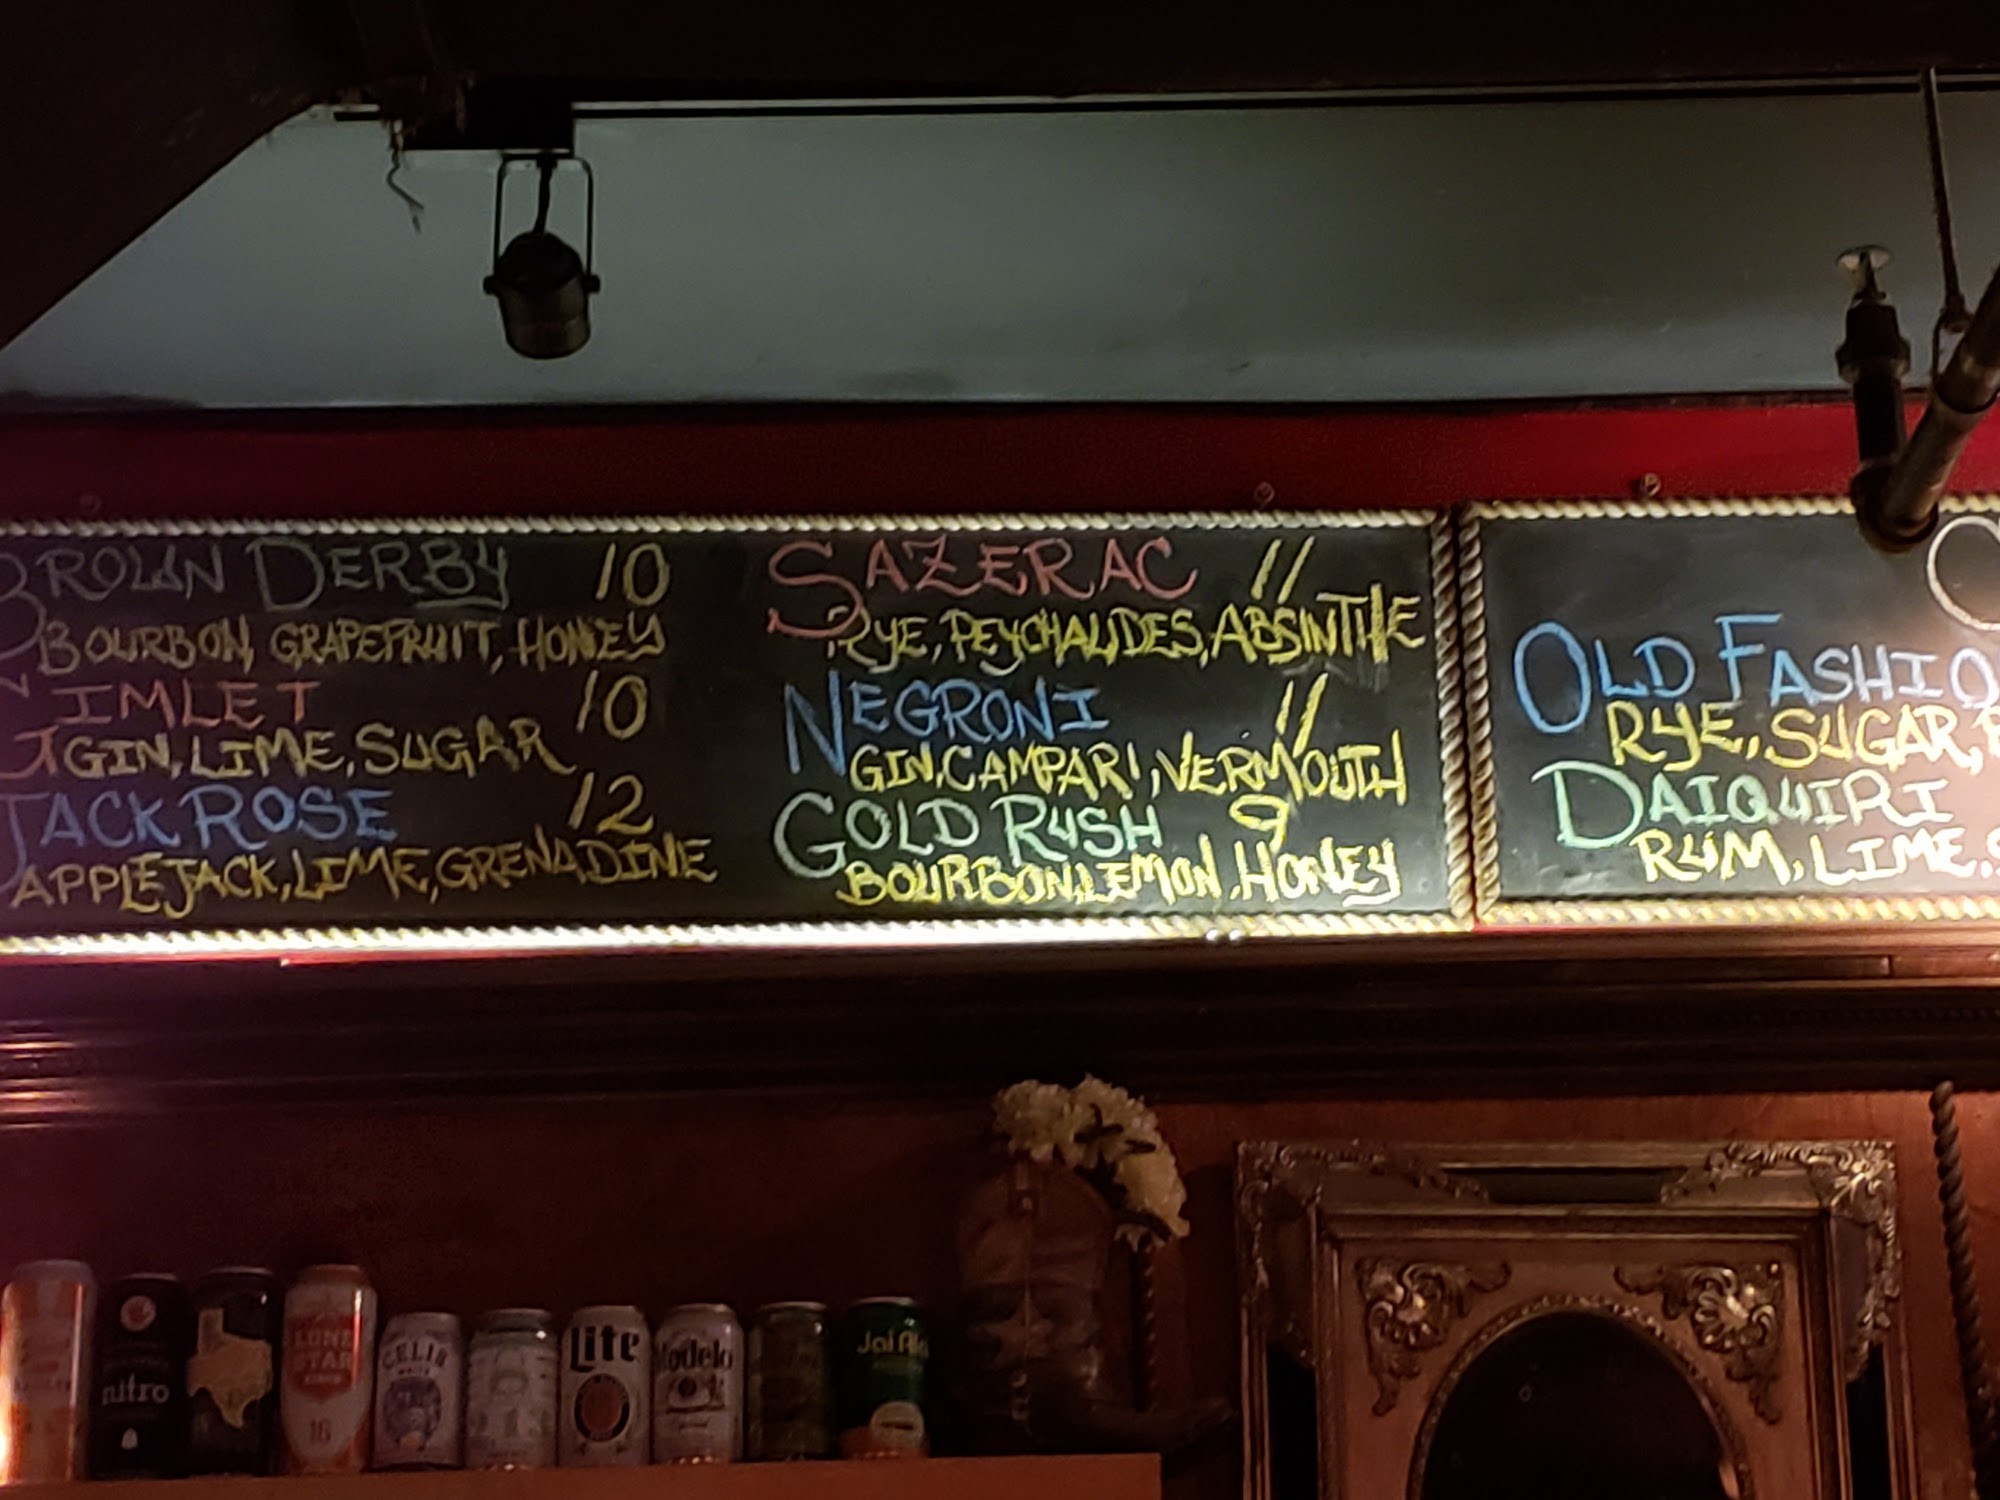 BROWN DERBY 10
BOURBON, GRAPEFRUIT, HONEY
GIMLET 10
GIN, LIME, SUGAR
JACK ROSE 12
APPLEJACK, LIME, GRENADINE
SAZERAC 11
RYE, PEYCHAUDES, ABSINTHE
NEGRONI 11
GIN, CAMPARI, VERMOUTH
GOLD RUSH 9
BOURBON, LEMON, HONEY
OLD FASHIO
RYE, SUGAR,
DAIQUIRI
RUM, LIME,
nitro
LONE
STAR
16
CELIS
Lite
Modelo
Jai Al